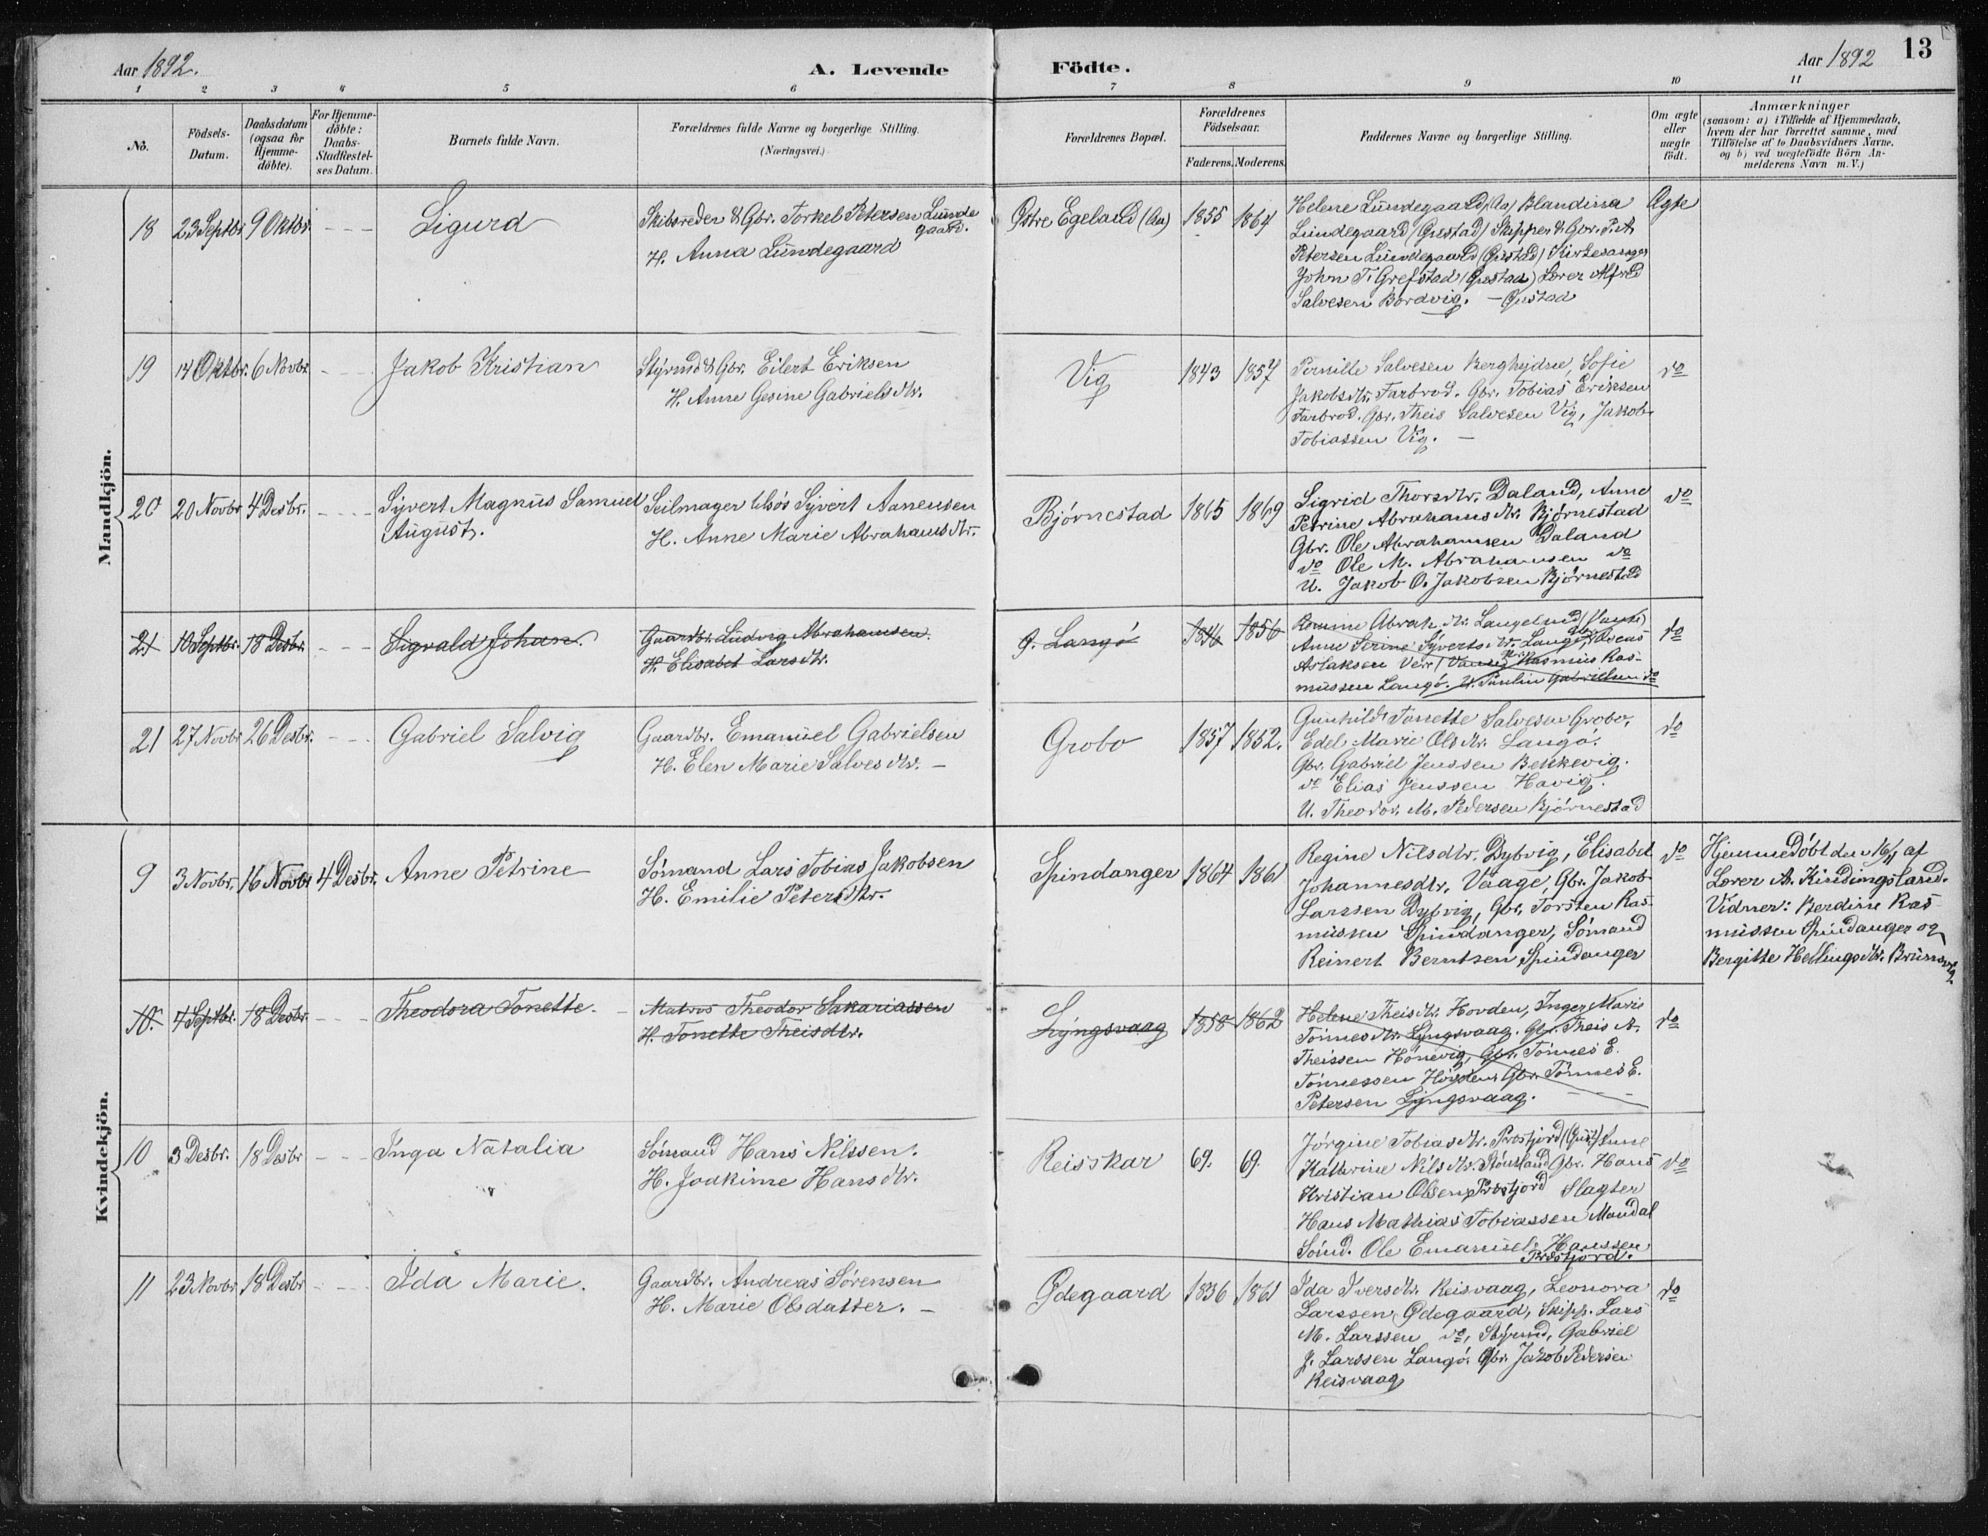 Aar 1892.
A. Levende Födte.
Aar 1892
13
1 2 3 4 5 6 7 8 9 10 11
No.
Födsels-Datum.
Daabsdatum (ogsaa for Hjemmedöbte).
For Hjemmedöbte: Daabs-Stadfæstelses Datum.
Barnets fulde Navn.
Forældrenes fulde Navne og borgerlige Stilling.
(Næringsvei.)
Forældrenes Bopæl.
Forældrenes Födselsaar.
Faderens. Moderens.
Faddernes Navne og borgerlige Stilling.
Om ægte eller uægte födt.
Anmærkninger
(saasom: a) i Tilfælde af Hjemmedaab,
hvem der har forrettet samme, med
Tilföielse af to Daabsvidners Navne,
og b) ved uægtefödte Börn An-
melderens Navn m. V.)
Mandkjön.
18 23 Septbr. 9 Oktbr. - - - Sigurd
Skibsreder & Gbr. Torkel Petersen Lunde
gaard.
H. Anna Lundegaard
Østre Egeland (Aa) 1855 1864
Helene Lundegaard (Aa) Blandina
Lundegaard (Gustad) Skipper & Gbr. P. A.
Petersen Lundegaard (Gustad) Kirkesanger
John T. Grefstad (Gustad) Lærer Alfred
Salvesen Bordvig. - Gustad
Ægte
19 14 Oktbr. 6 Novbr. - - - Jakob Kristian
Styrmd & Gbr. Eilert Eriksen
H. Anne Gesine Gabrielsdtr.
Vig 1843 1857
Pernille Salvesen Berghejdne, Sofie
Jakobsdtr. Farbrod. Gbr. Tobias Eriksen
Farbrod. Gbr. Theis Salvesen Vig, Jakob
Tobiassen Vig. -
do
20 20 Novbr 4 Desbr. - - - Syvert Magnus Samuel
August.
Seilmager Syvert Aanensen
H. Anne Marie Abrahamsdtr.
Bjørnestad 1865 1869
Sigrid Thorsdtr. Daland, Anne
Petrine Abrahamsdtr. Bjørnestad
Gbr. Ole Abrahamsen Daland
do Ole M. Abrahamsen do
U. Jakob O. Jakobsen Bjørnestad
do
21 10 Septbr. 18 Desbr. - - - Sigvald Johan.
Gaardbr. Ludvig Abrahamsen.
H. Elisabet Larsdtr.
Langø 1846 1856
Abrah.dtr. Langelund (Vanse)
Anne Serine Syvertsdtr. Langø, Andreas
Aslaksen (Vanse) Gbr. Rasmus Ras-
mussen Langø. U. Paulin Gabrielsen do
do
21 27 Novbr 26 Desbr. - - - Gabriel Salvig
Gaardbr. Emanuel Gabrielsen
H. Elen Marie Salvesdtr. -
Grobo 1857 1852.
Gunhild Tonette Salvesen Grobo,
Edel Marie Olsdtr. Langø.
Gbr. Gabriel Jenssen Bekkevig.
do Elias Jenssen Havig.
U. Theodor M. Pedersen Bjørnestad
do
Kvindekjön.
9 3 Novbr. 16 Novbr 4 Desbr. Anne Petrine
Sømand Lars Tobias Jakobsen
H. Emilie Petersdtr.
Spindanger 1864 1861
Regine Nilsdtr. Dybvig, Elisabet
Johannesdtr. Vaage, Gbr. Jakob
Larssen Dybvig, Gbr. Torsten Ras-
mussen Spindanger, Sømand
Reinert Berntsen Spindanger
do
Hjemmedøbt den 16/11 af
Lærer A. Kindingsland.
Vidner: Berdine Ras-
mussen Spindanger og
Bergitte Hellingsdtr. Brunsvig
10. 4 Septbr. 18 Desbr. - - - Theodora Tonette. -
Matros Theodor Sakariassen
H. Tonette Theisdtr.
Lyngsvaag 1858 1862
Helene Theisdtr. Hovden, Inger Marie
Tønnesdtr. Lyngsvaag. Gbr. Theis A.
Theissen Hønevig, Gbr. Tønnes E.
Tønnessen Hovden. Gbr. Tønnes E.
Petersen Lyngsvaag. - - -
do
10 3 Desbr. 18 Desbr - - - Inga Natalia
Sømand Hans Nilssen.
H. Joakime Hansdtr.
Reisskar 69. 69.
Jørgine Tobiasdtr. Rosfjord (Gust) Anne
Kathrine Nilsdtr. Gbr. Hans
Kristian Olsen Rosfjord Slagter
Hans Mathias Tobiassen Mandal
Sømd. Ole Emanuel Hanssen
Rosfjord.
do
11 23 Novbr 18 Desbr - - - Ida Marie.
Gaardbr. Andreas Sørensen
H. Marie Olsdatter. -
Ødegaard 1836 1861
Ida Iversdtr. Reisvaag, Leonora
Larssen Ødegaard, Skipp. Lars
M. Larssen do, Styrmd. Gabriel
J. Larssen Langø. Gbr. Jakob Pedersen
Reisvaag
do